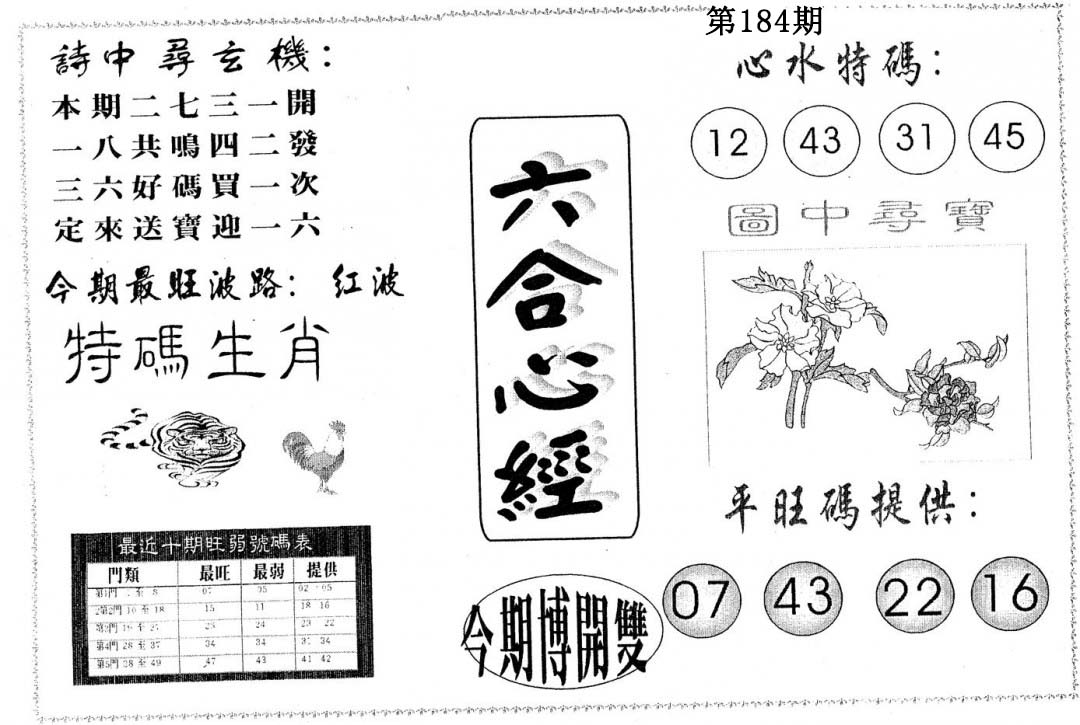 第184期
詩中尋玄機：
本期二七三一開
一八共鳴四二發
三六好碼買一次
定來送寶迎一六
今期最旺波路：紅波
特碼生肖
最近十期旺弱號碼表
門類 最旺 最弱 提供
15 11 18 16
24 23 22
第4門 28 至 37 34 34 31 34
第5門 38 至 49 47 43 41 42
六合心經
今期博開雙
心水特碼：
12 43 31 45
圖中尋寶
平旺碼提供：
07 43 22 16